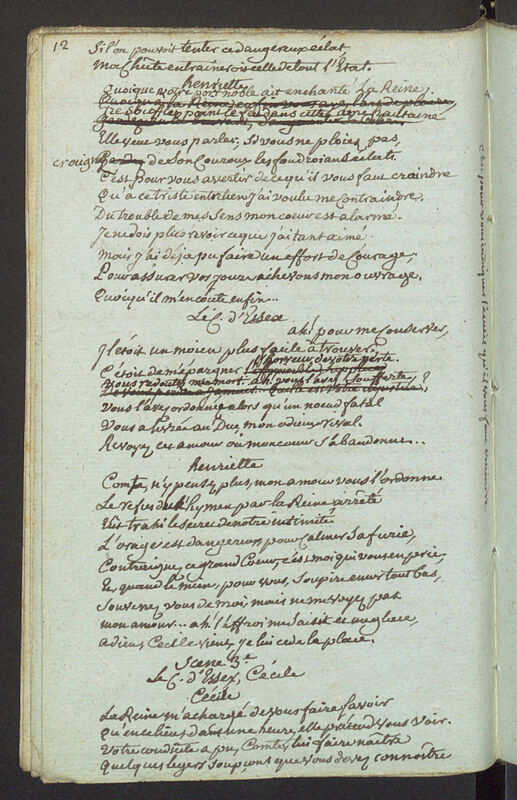 12
Si l'on pouvoit tenter ce dangereux éclat,
ma Chûte entraineroit celle de tout l'Etat.
henriette
quoique votre port noble ait enchanté La Reine,
Elle veut vous parler. Si vous ne ployez pas,
craignez de son Couroux les foudroians éclats.
C'est pour vous avertir de ce qu'il vous faut craindre
Qu'a ce triste entretien j'ai voulu me contraindre.
Du trouble de mes Sens mon coeur est alarmé.
Je ne dois plus revoir ce que j'ai tant aimé.
mais j'ai déja pu faire un effort de Courage;
Pour assurer vos jours achevons mon ouvrage.
Quoiqu'il m'en coute enfin...
Le C. d'Essex
ah! pour me Conserver,
Il étoit un moien plus facile à trouver;
C'étoit de m'épargner l'horreur de votre perte.
vous redoutez ma mort. ah! vous l'avez Soufferte,
vous l'avez ordonnée alors qu'un noeud fatal
vous a livrée au Duc, mon odieux rival.
Revoyez cet amour où mon coeur S'abandonne...
henriette
Comte, n'y pensez plus, mon amour vous l'ordonne.
Le refus de l'hymen par la Reine arrêté
Eût trahi le Secret de notre intimité
L'orage est dangereux pour calmer Sa furie,
Contraignez ce grand Coeur, c'est moi qui vous en prie,
Et, quand le mien, pour vous, Soupire encor tout bas,
Souvenez vous de moi, mais ne me voyez pas
mon amour... ah! l'effroi me saisit et me glace,
adieu, Cecile vient, je lui cede la place.
Scene 3.e
Le C. d'Essex, Cécile
Cécile
La Reine m'a chargé de vous faire Savoir
Qu'en ce lieu, dans une heure, elle prétend vous voir.
Votre conduite a pu, Comte, lui faire naître
Quelques legers Soupçons que vous devez connoître